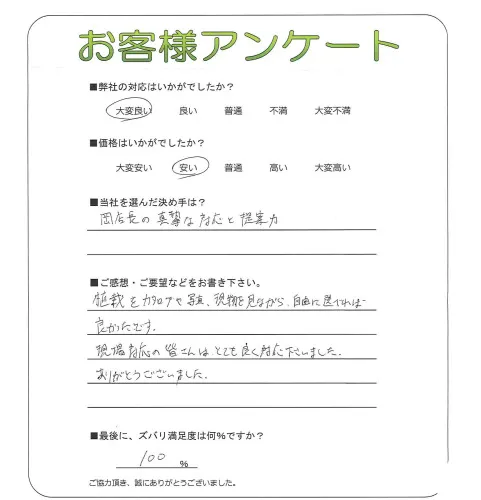 お客様アンケート
■弊社の対応はいかがでしたか？
大変良い 良い 普通 不満 大変不満
■価格はいかがでしたか？
大変安い 安い 普通 高い 大変高い
■当社を選んだ決め手は？
岡店長の真摯な対応と提案力
■ご感想・ご要望などをお書き下さい。
植栽をカタログや写真、現物を見ながら、自由に選べれば
良かったです。
現場対応の皆さんは、とても良く対応下さいました。
ありがとうございました。
■最後に、ズバリ満足度は何％ですか？
100 ％
ご協力頂き、誠にありがとうございました。